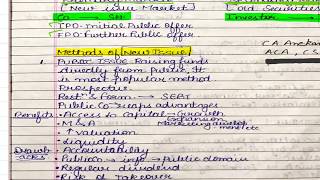 (New issue Market)
Old Securities
Co → SH
Investor →
IPO-Initial Public Offer
FPO-Further Public Offer
CA Aneka
ACA, CS
Methods of New Issue
1. Public Issue Raising funds
directly from public. It
is most popular method
Prospectus.
→ SEBI
Public Co. reaps advantages
Benefits • Access to Capital - Growth
Expansion
• M&A
• ↑ Valuation
• Liquidity
Drawbacks • Accountability
• Public Co → info → public domain
• Regular dividend
• Risk of Takeover